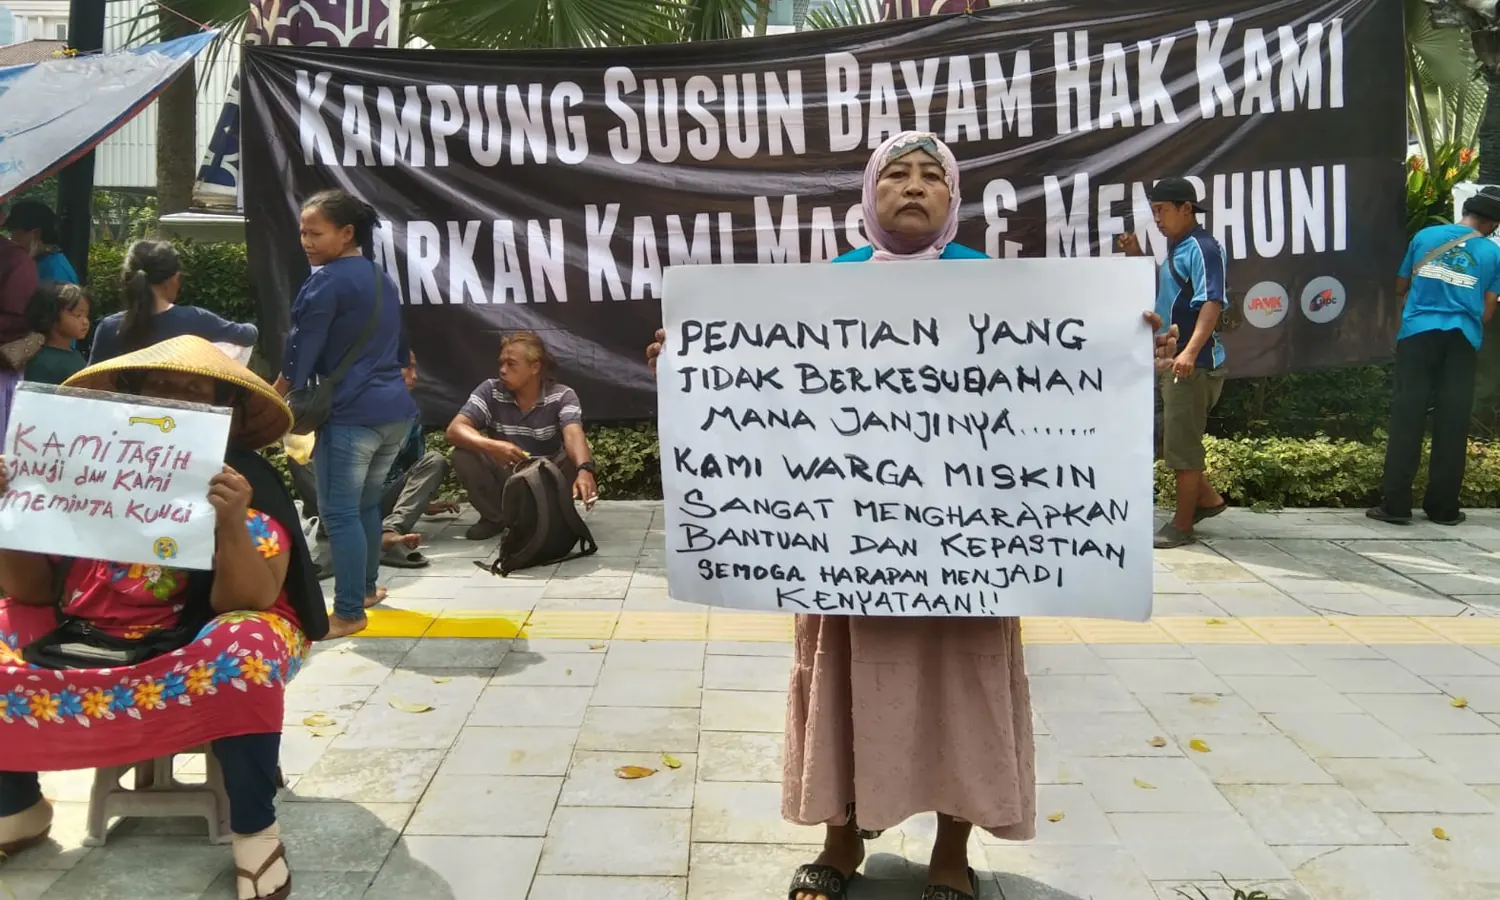 KAMPUNG SUSUN BAYAM HAK KAMI
ARKAN KAMI MAS & MENGHUNI
JRMK
UPC
PENANTIAN YANG
TIDAK BERKESUDAHAN
MANA JANJINYA.......
KAMI WARGA MISKIN
SANGAT MENGHARAPKAN
BANTUAN DAN KEPASTIAN
SEMOGA HARAPAN MENJADI
KENYATAAN!!
KAMI TAGIH
JANJI DAN KAMI
MEMINTA KUNCI
Hello
Hello